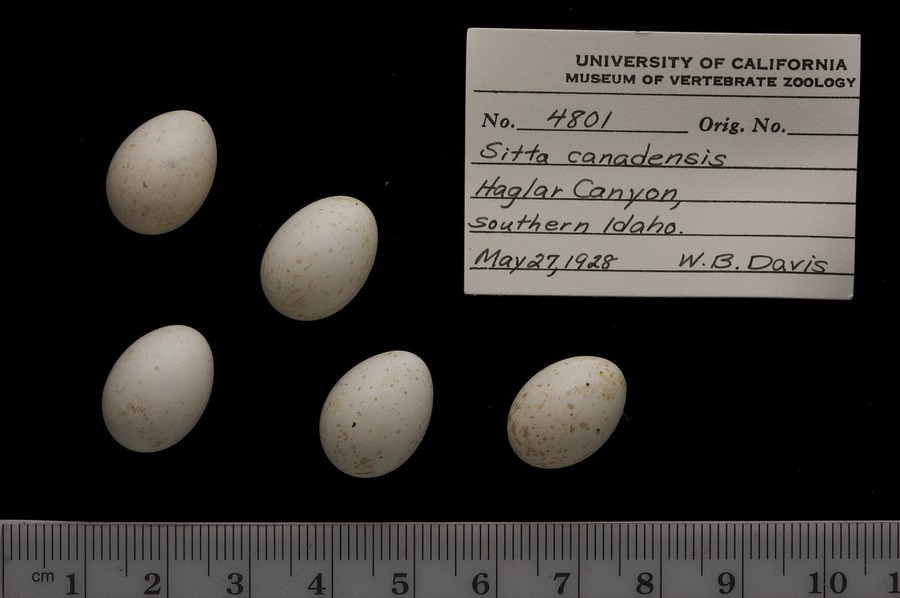 UNIVERSITY OF CALIFORNIA
MUSEUM OF VERTEBRATE ZOOLOGY
No. 4801 Orig. No.
Sitta canadensis
Haglar Canyon,
southern Idaho.
May 27, 1928 W.B. Davis
cm 1 2 3 4 5 6 7 8 9 10 1